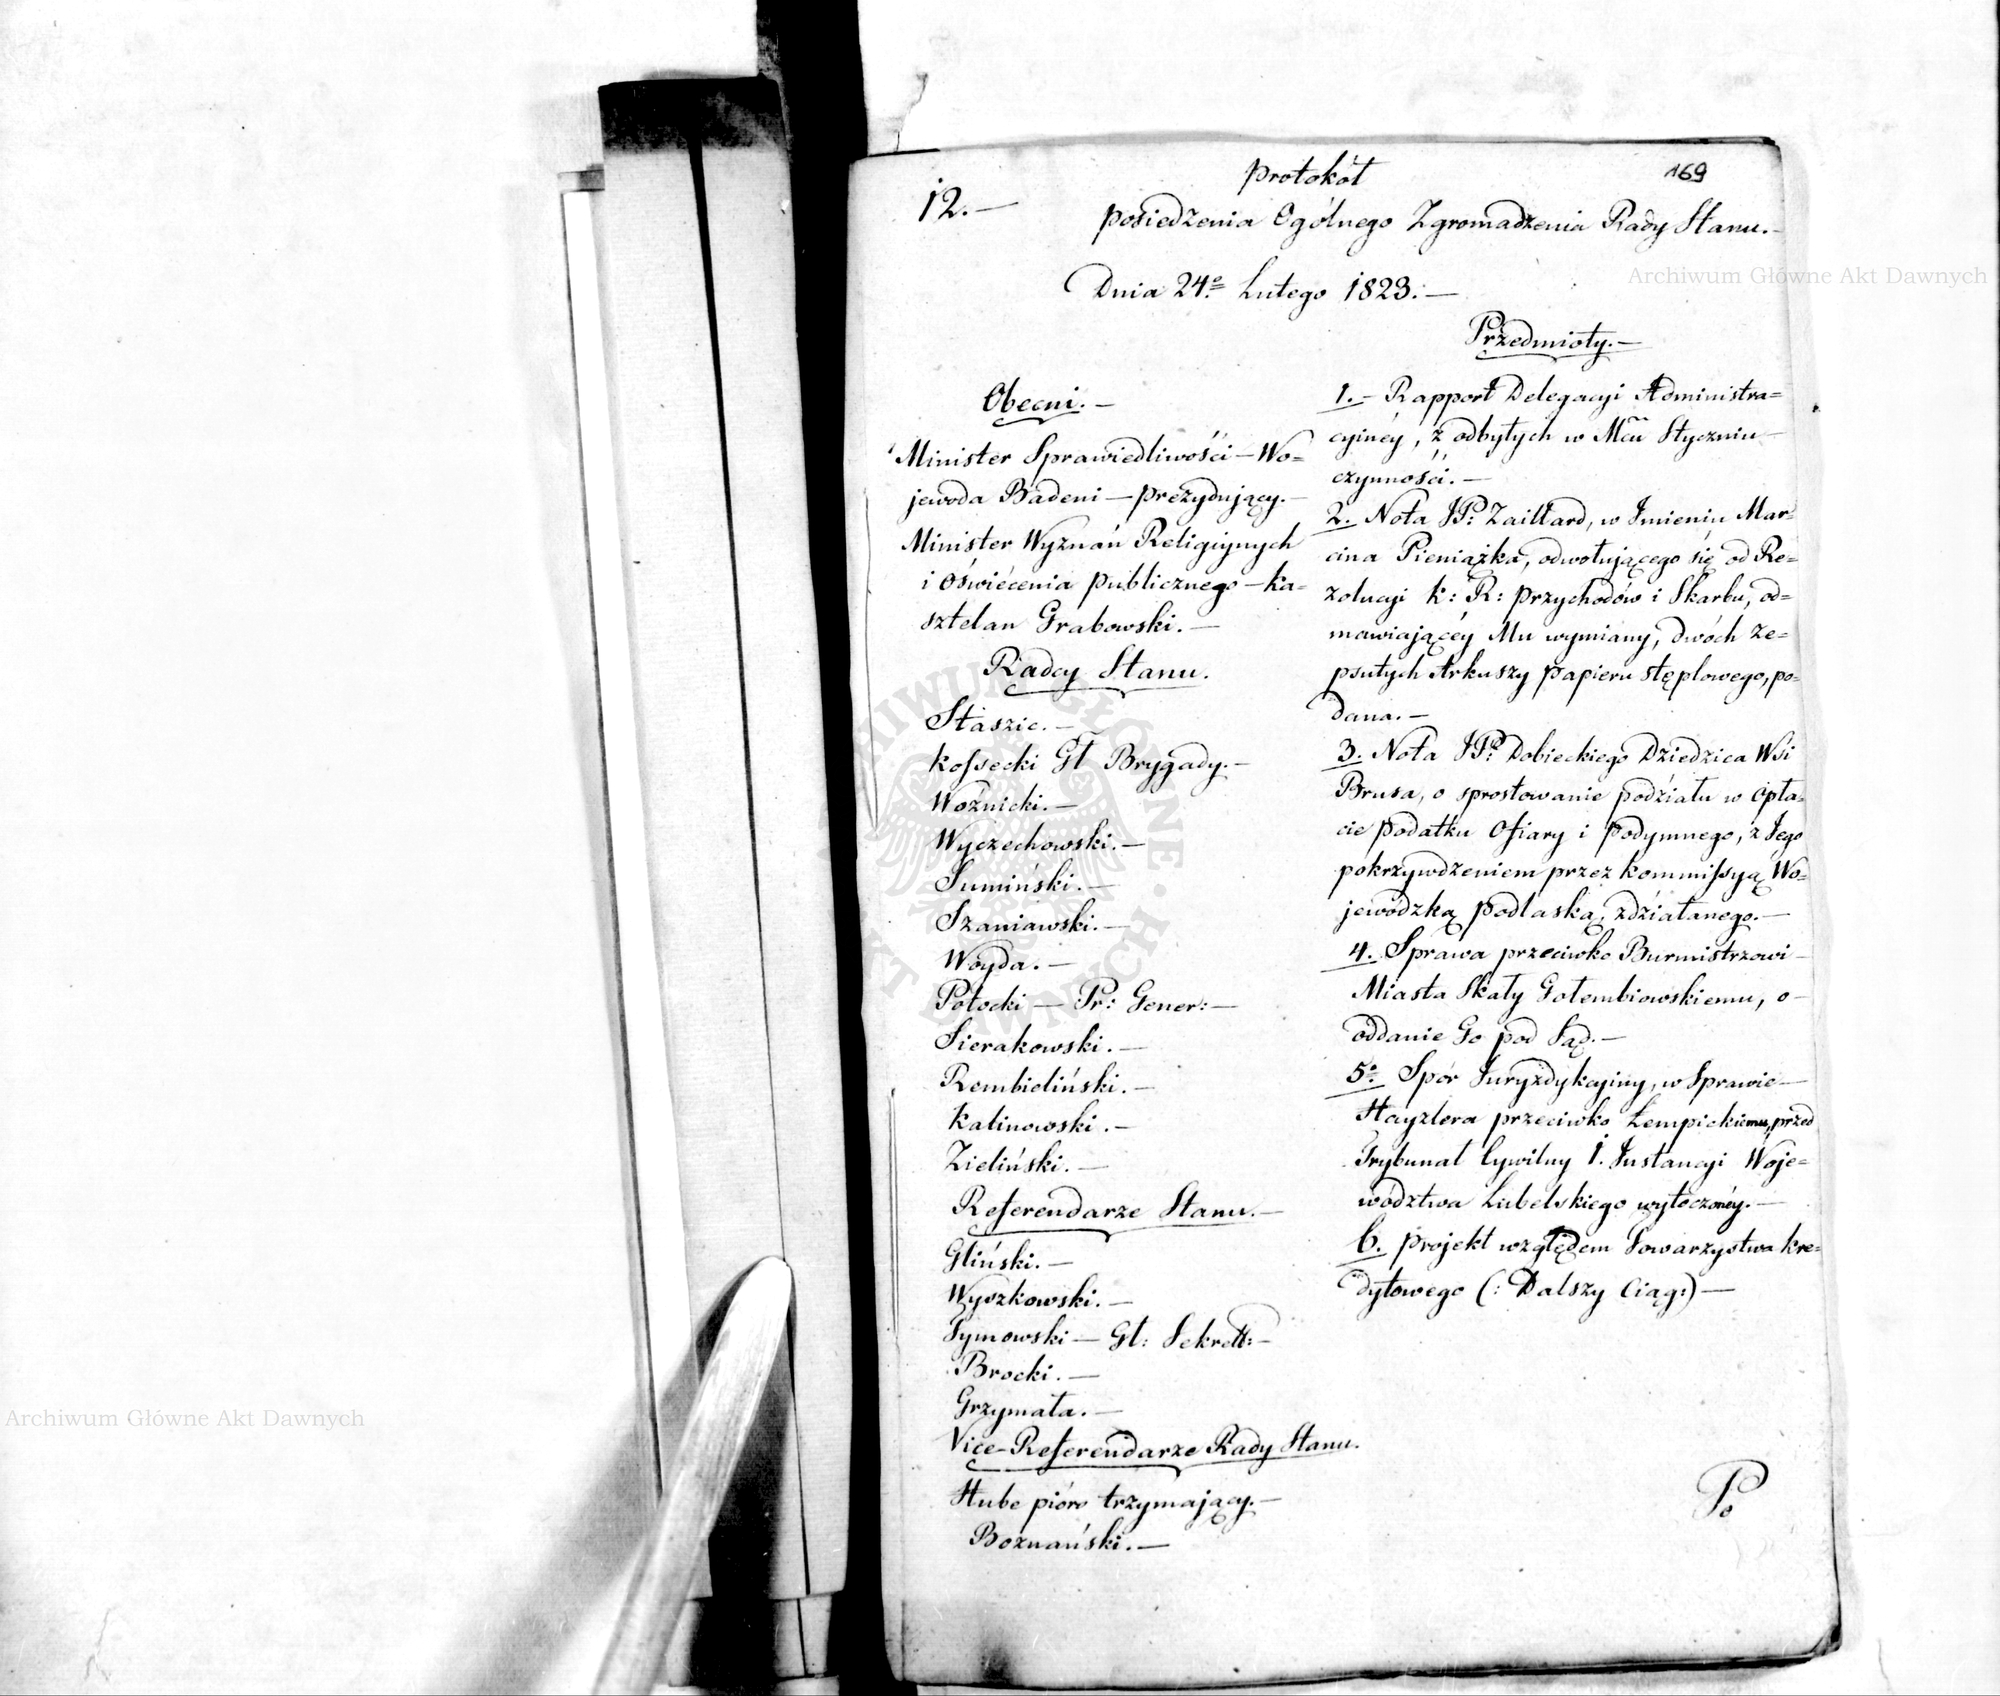 169
12.—
Protokół
Posiedzenia Ogólnego Zgromadzenia Rady Stanu.—
Dnia 24º Lutego 1823.—
Obecni.—
Minister Sprawiedliwości—Wo=
jewoda Badeni—Prezydujący.—
Minister Wyznań Religiynych
i Oświécenia Publicznego—Ka=
sztelan Grabowski.—
Radcy Stanu.
Staszic.—
Kossecki Gł Brygady.—
Woźnicki.—
Wyczechowski.—
Sumiński.—
Szaniawski.—
Woyda.—
Potocki—Pr: Gener:—
Sierakowski.—
Rembieliński.—
Kalinowski.—
Zieliński.—
Referendarze Stanu.—
Gliński.—
Wyszkowski.—
Tymowski—Gł: Sekrett:—
Brocki.—
Grzymała.—
Vice-Referendarze Rady Stanu.
Hube pióro trzymający.—
Boznański.—
Przedmioty.—
1.—Rapport Delegacyi Administra=
cyinéy, z odbytych w Mcu Styczniu—
czynności.—
2. Nota JP: Zaillard, w Imieniu Mar=
cina Pieniążka, odwołującego się od Re=
zolucyi K: R: Przychodów i Skarbu, od=
mawiającéy Mu wymiany, dwóch ze=
psutych Arkuszy Papieru stęplowego, po=
dana.—
3. Nota JP: Dobieckiego Dziedzica Wsi
Brusa, o sprostowanie podziału w opła=
cie Podatku Ofiary i Podymnego, z Jego
pokrzywdzeniem przez Kommissyą Wo=
jewódzką Podlaską, zdziałanego.—
4. Sprawa przeciwko Burmistrzowi—
Miasta Skały Gołembiowskiemu, o—
oddanie Go pod Sąd.—
5º Spór Juryzdykcyiny, w Sprawie—
Hayzlera przeciwko Łempickiemu, przed
Trybunał Cywilny I. Instancyi Woje=
wództwa Lubelskiego wytoczonéy.—
6. Projekt względem Towarzystwa Kre=
dytowego (: Dalszy Ciąg:)—
Po
Archiwum Główne Akt Dawnych
Archiwum Główne Akt Dawnych
ARCHIWUM GŁÓWNE AKT DAWNYCH